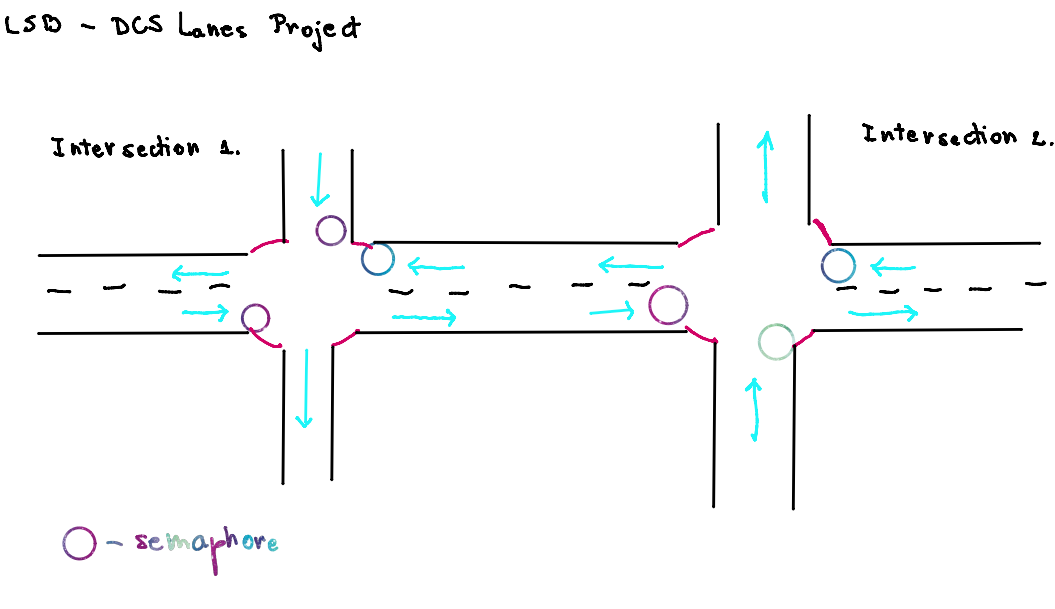 LSD - DCS Lanes Project
Intersection 1.
Intersection 2.
- semaphore